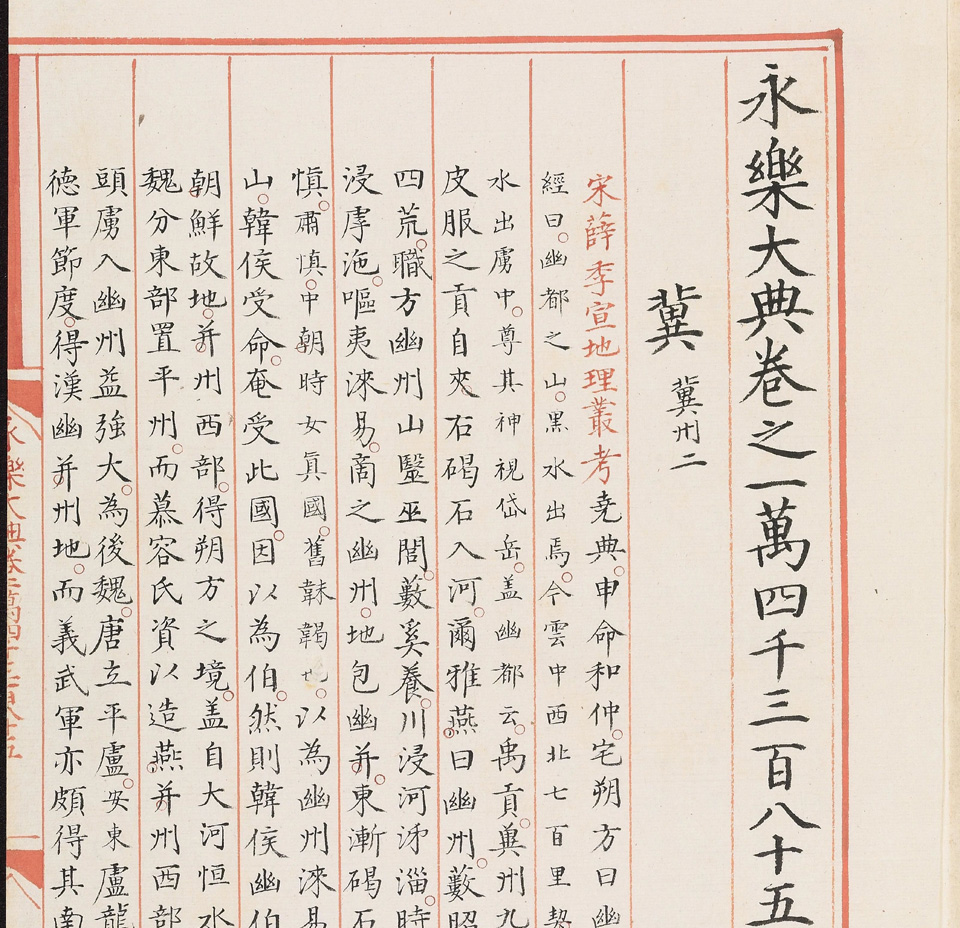 永樂大典卷之一萬四千三百八十五
冀 冀州二
宋薛季宣地理叢考堯典。申命和仲。宅朔方曰幽
經曰。幽都之山。黑水出焉。今雲中西北七百里契
水出虜中。尊其神視岱岳。盖幽都云。禹貢。冀州九
皮服之貢自來。石碣石入河。爾雅燕。曰幽州。藪昭
四荒。職方幽州山毉巫閭。藪奚養。川浸河泲淄。時
浸虖池。嘔夷淶易。商之幽州。地包幽并。東漸碣石
慎。肅慎。中朝時女真國。舊韎鞨也。以為幽州淶易
山。韓侯受命。奄受此國。因以為伯。然則韓侯幽伯
朝鮮故地。并州西部。得朔方之境。盖自大河恒水
魏分東部置平州。而慕容氏資以造燕。并州西部
頭虜入幽州益強大。為後魏。唐立平盧。安東盧龍
德軍節度。得漢幽并州地。而義武軍亦頗得其南
永樂大典卷一萬四千三百八十五